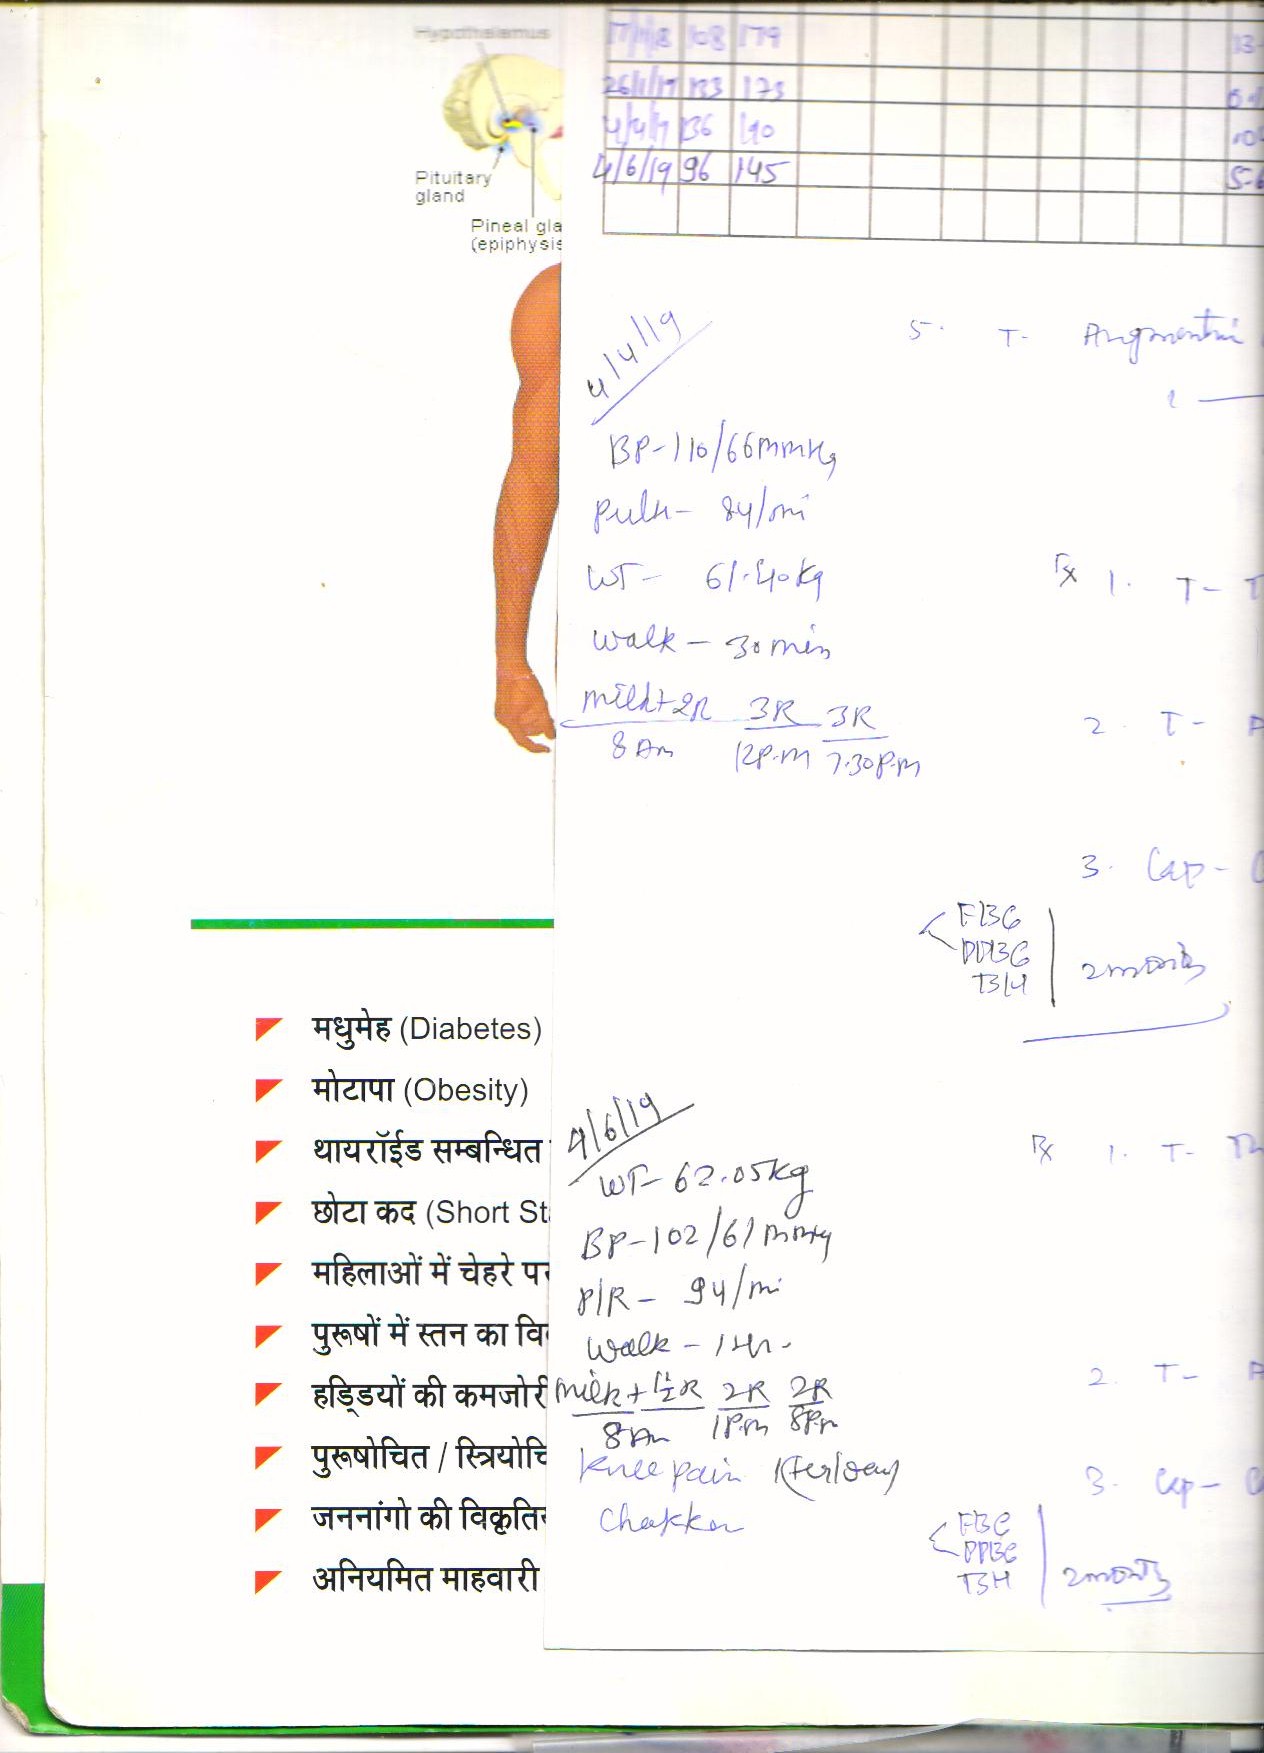 Hypothalamus
Pituitary
gland
Pineal gla
(epiphysis
108 179
26/1/19 133 173
4/4/19 136 190
4/6/19 96 145
4/4/19
5. T- Augmentin
BP-110/66mmHg
Pulse- 84/mi
WT- 61.40kg
Rx 1. T-
walk - 30 min
milk+2R 3R 3R
8 Am 12P.M 7.30P.M
2. T- A
3. Cap- C
FBG
PPBG
TSH
2 months
मधुमेह (Diabetes)
मोटापा (Obesity)
थायरॉईड सम्बन्धित
छोटा कद (Short St
महिलाओं में चेहरे पर
पुरूषों में स्तन का वि
हड्डियों की कमजोरी
पुरूषोचित / स्त्रियोचि
जननांगो की विकृति
अनियमित माहवारी
4/6/19
Rx 1. T- Th
WT- 62.05kg
BP-102/61mmHg
P/R- 94/mi
walk - 1 Hr.
milk+1½R 2R 2R
8 Am 1P.m 8P.m
2. T- A
knee pain
chakkar
3. Cap- C
FBG
PPBG
TSH
2 months